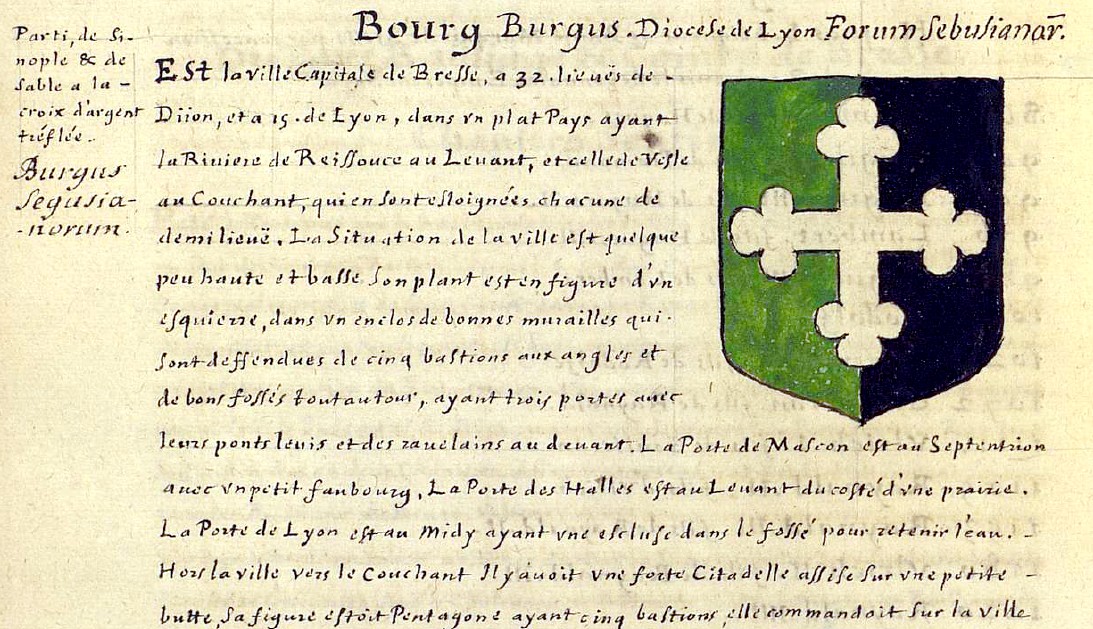 Bourg Burgus. Diocese de Lyon Forum Sebusianar̄.
Parti, de Si-
nople & de
sable a la -
croix d'argent
tréflée.
Burgus
Segusia-
-norum.
Est la ville Capitale de Bresse, a 32. lieuës de -
Diion, et a 15. de Lyon, dans vn plat Pays ayant
la Riviere de Reissouce au Levant, et celle de Vesle
au Couchant, qui en sont esloignées chacune de
demi lieuë. La Situation de la ville est quelque
peu haute et basse son plant est en figure d'vn
esquierre, dans vn enclos de bonnes murailles qui.
sont deffendues de cinq bastions aux angles et
de bons fossés tout autour, ayant trois portes avec
leurs ponts levis et des ravelains au devant. La Porte de Mascon est au Septentrion
avec vn petit faubourg, La Porte des Halles est au Levant du costé d'vne prairie.
La Porte de Lyon est au Midy ayant vne escluse dans le fossé pour retenir l'eau. -
Hors la ville vers le Couchant Il y avoit vne forte Citadelle assise sur vne petite -
butte, sa figure estoit Pentagone ayant cinq bastions, elle commandoit sur la ville